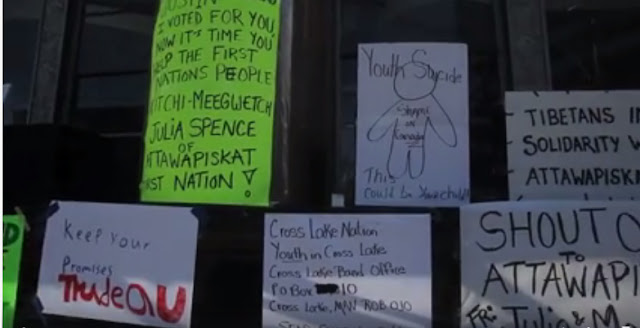 JUSTIN
I VOTED FOR YOU,
NOW IT'S TIME YOU
HELP THE FIRST
NATIONS PEOPLE
KITCHI-MEEGWETCH
JULIA SPENCE
OF
ATTAWAPISKAT
FIRST NATION!
Youth Suicide
in
Canada
This
could be Your child
TIBETANS
SOLIDARITY
ATTAWAPISKA
Keep Your
Promises
Trudeau
Cross Lake Nation
Youth in Cross Lake
Cross Lake Band Office
P.O Box 10
Cross Lake, MAN R0B 0J0
SHOUT
TO
ATTAWAPI
FR: Julia &